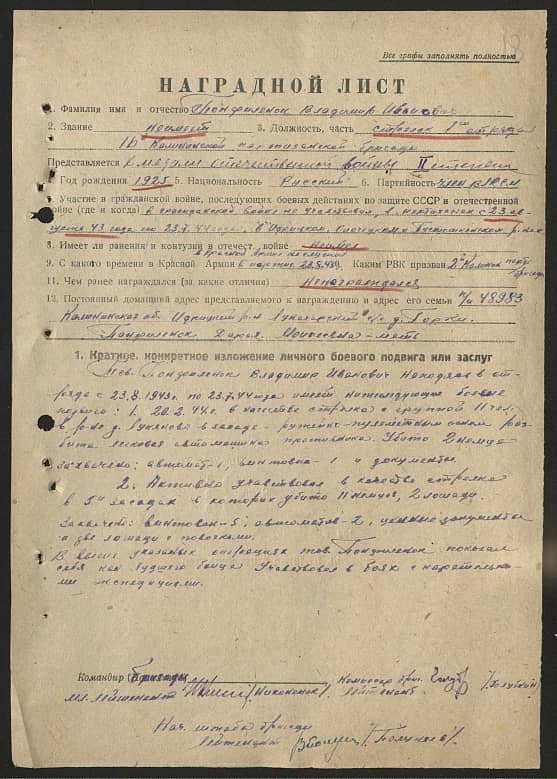 Все графы заполнять полностью
НАГРАДНОЙ ЛИСТ
Фамилия имя и отчество Панфиленок Владимир Иванович
2. Звание неимеет 3. Должность, часть стрелок 1го отряда
1й Калининской партизанской бригады
Представляется к медали Отечественной войны II степени
Год рождения 1925 5. Национальность Русский 6. Партийность член ВЛКСМ
Участие в гражданской войне, последующих боевых действиях по защите СССР и отечественной
войне (где и когда) в гражданской войне не участвовал, в партизанах с 23 ав-
густа 43 года по 23.7.44 года, в Идрицком, Опочецком и Пустошкинском р-нах
8. Имеет ли ранения и контузии в отечест. войне неимеет
в Красной Армии не служил
9. С какого времени в Красной Армии в партиз. 23.8.43г. Каким РВК призван
11. Чем ранее награждался (за какие отличия) ненаграждался
12. Постоянный домашний адрес представляемого к награждению и адрес его семьи п/п 48983
Калининская об. Идрицкий р-н с/с д. Горки.
Панфиленок Дарья мать
1. Краткое, конкретное изложение личного боевого подвига или заслуг
Тов. Панфиленок Владимир Иванович находясь в от-
ряде с 23.8.1943г. по 23.7.44 года имеет нижеследующие боевые
подвиги: 1. 20.2.44г. в качестве стрелка с группой 11 чел.
в р-не д. Луканово в засаде ружейно-пулеметным огнем раз-
бита легковая автомашина противника. Убито 2 немца
Захвачено: автомат-1, винтовка-1 и документы
2. Активно участвовал в качестве стрелка
в 5ти засадах в которых убито 11 немцев, 2 лошади.
Захвачено: винтовок-5, автоматов-2, ценные документы
и две лошади с повозками.
В выше указанных операциях тов. Панфиленок показал
себя как лучший боец. Участвовал в боях с карательны-
ми экспедициями.
Командир бригады Комиссар бриг.
мл. лейтенант лейтенант /Голубкин/
Нач. штаба бригады
лейтенант